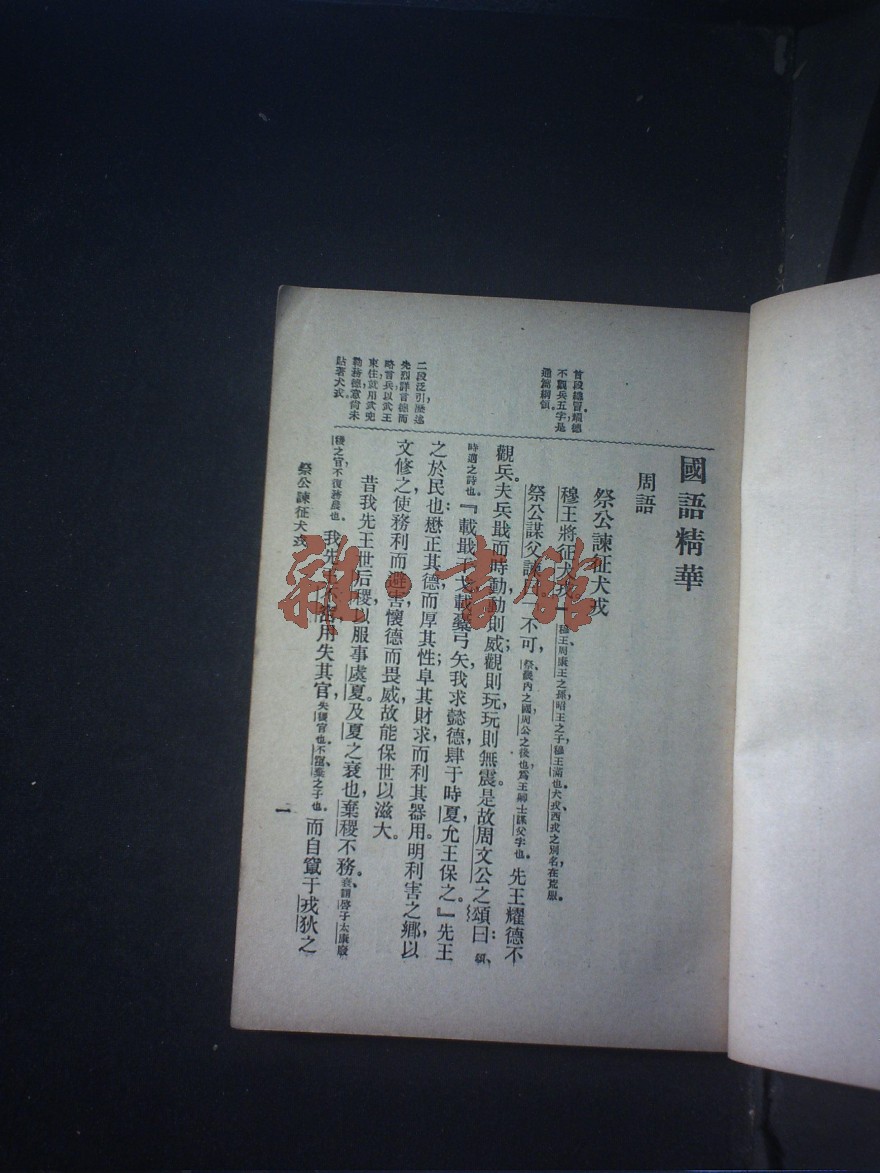 國語精華
周語
祭公諫征犬戎
穆王將征犬戎穆王、周康王之孫、昭王之子、穆王滿也。犬戎、西戎之別名、在荒服。
祭公謀父諫曰『不可，祭、畿內之國、周公之後也、爲王卿士、謀父字也。先王耀德不
觀兵。夫兵戢而時動，動則威；觀則玩，玩則無震。是故周文公之頌曰：頌、
時邁之詩也。『載戢干戈，載櫜弓矢，我求懿德，肆于時夏，允王保之。』先王
之於民也：懋正其德，而厚其性；阜其財求，而利其器用。明利害之鄉，以
文修之，使務利而避害，懷德而畏威，故能保世以滋大。
昔我先王世后稷，以服事虞夏。及夏之衰也，棄稷不務。衰、謂啓子太康廢
稷之官、不復務農也。我先王不窋用失其官，失稷官也。不窋、棄之子也。而自竄于戎狄之
首段總冒。耀德
不觀兵五字是
通篇綱領。
二段泛引歷述
先烈詳言德而
略言兵以武王
東住就用武兜
勤務德意尚未
點著犬戎。
祭公諫征犬戎
一
雜·書館